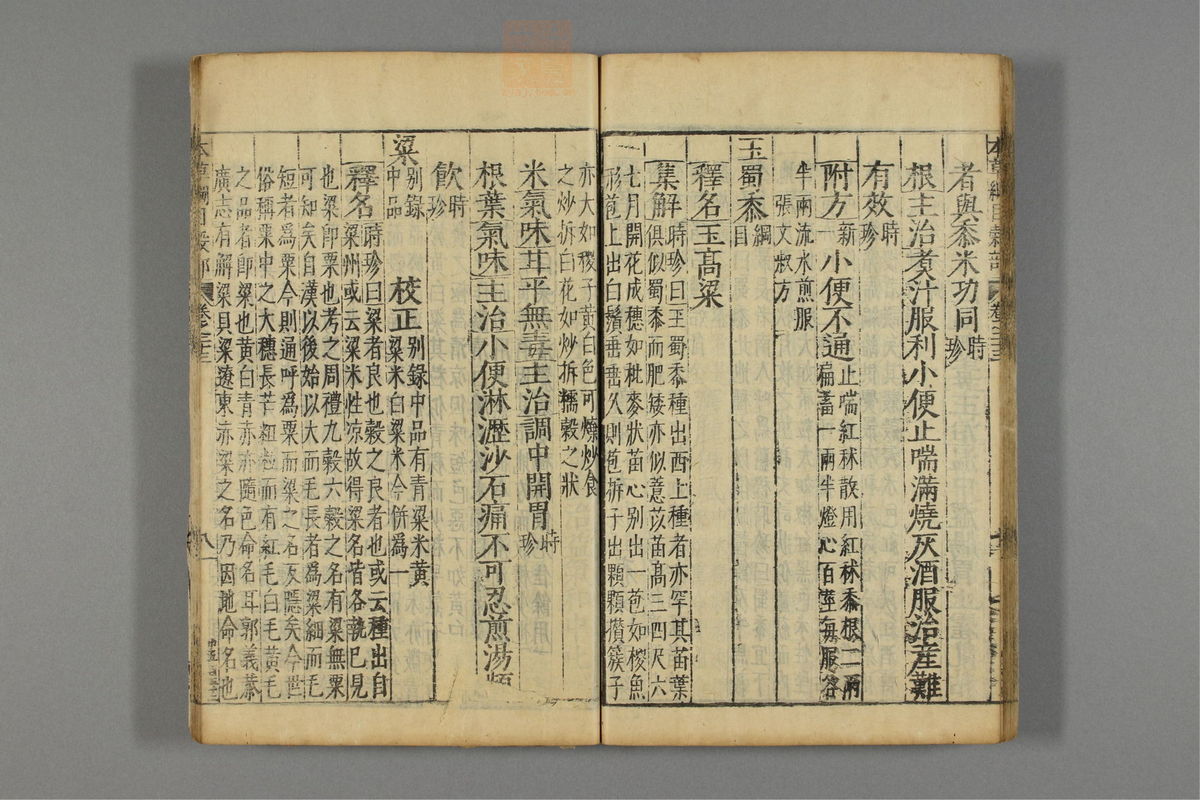 者與黍米功同時珍
根主治煮汁服利小便止喘滿燒灰酒服治産難
有效時珍
附方新一小便不通止喘紅秫散用紅秫黍根二兩
萹蓄一兩半燈心百莖每服各
半兩流水煎服
張文叔方
玉蜀黍綱目
釋名玉高粱
集解時珍曰玉蜀黍種出西土種者亦罕其苗葉
俱似蜀黍而肥矮亦似薏苡苗高三四尺六
七月開花成穗如秕麥狀苗心別出一苞如椶魚
形苞上出白鬚垂垂久則苞拆子出顆顆攢簇子
亦大如椶子黃白色可煠炒食
之炒拆白花如炒拆糯穀之狀
米氣味甘平無毒主治調中開胃時珍
根葉氣味主治小便淋瀝沙石痛不可忍煎湯頻
飲時珍
粱別錄中品
校正別錄中品有青粱米黃
粱米白粱米今併爲一
釋名時珍曰粱者良也穀之良者也或云種出自
粱州或云粱米性涼故得粱名皆各執己見
也粱即粟也考之周禮九穀六穀之名有粱無粟
可知矣自漢以後始以大而毛長者爲粱細而毛
短者爲粟今則通呼爲粟而粱之名反隱矣今世
俗稱粟中之大穗長芒粗粒而有紅毛白毛黃毛
之品者即粱也黃白青赤亦隨色命名耳郭義恭
廣志有解粱貝粱遼東赤粱之名乃因地命名也